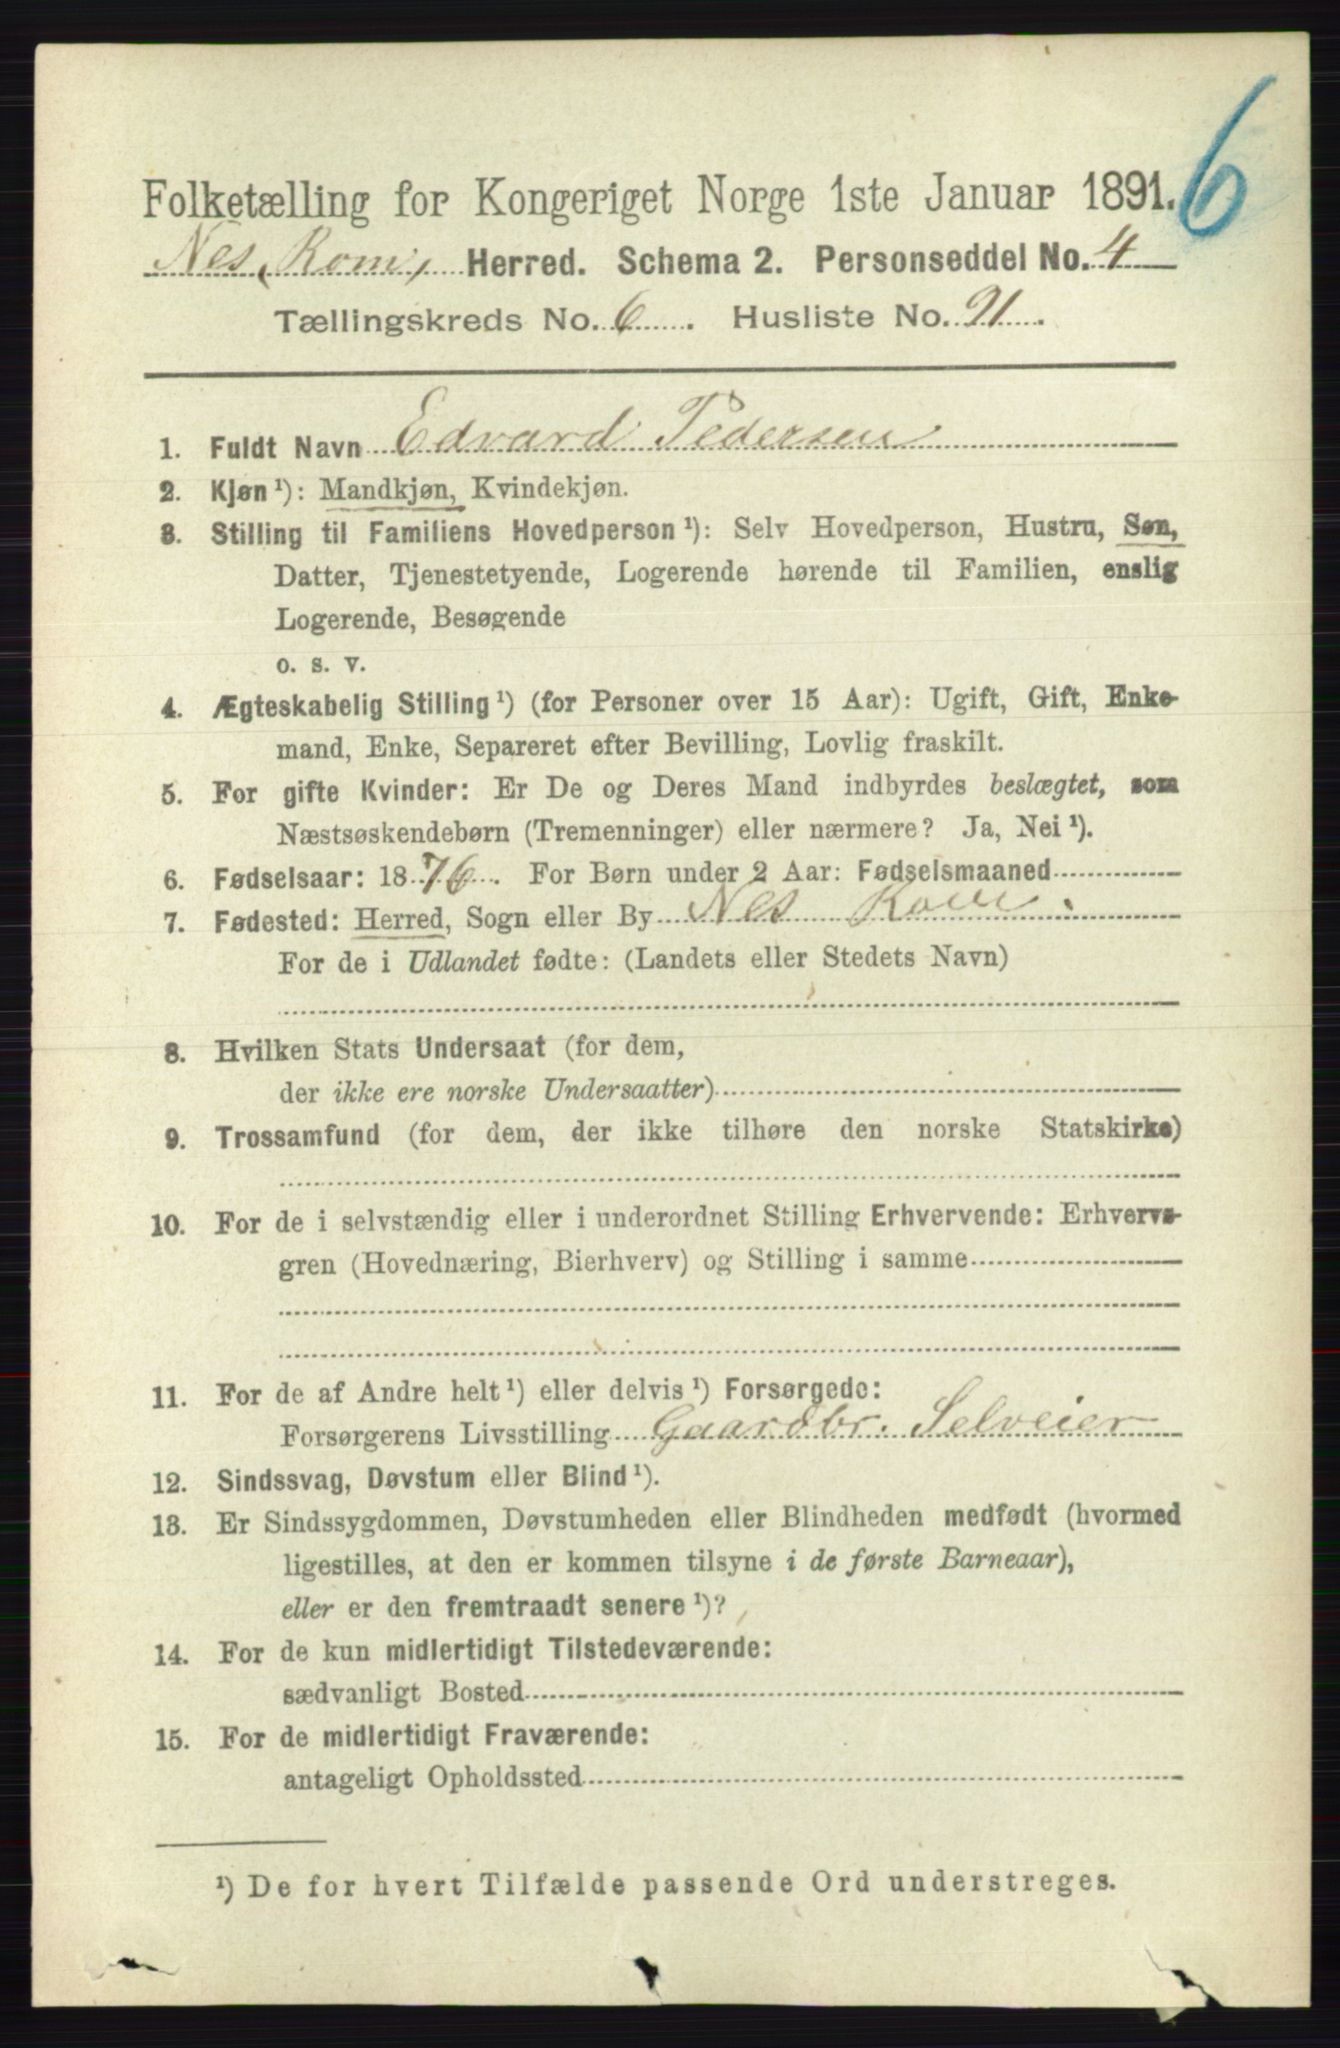 6
Folketælling for Kongeriget Norge 1ste Januar 1891.
Nes, Rom, Herred. Schema 2. Personseddel No. 4
Tællingskreds No. 6. Husliste No. 91.
1. Fuldt Navn Edvard Pedersen
2. Kjøn ¹): Mandkjøn, Kvindekjøn.
3. Stilling til Familiens Hovedperson ¹): Selv Hovedperson, Hustru, Søn,
Datter, Tjenestetyende, Logerende hørende til Familien, enslig
Logerende, Besøgende
o. s. v.
4. Ægteskabelig Stilling ¹) (for Personer over 15 Aar): Ugift, Gift, Enke-
mand, Enke, Separeret efter Bevilling, Lovlig fraskilt.
5. For gifte Kvinder: Er De og Deres Mand indbyrdes beslægtet, som
Næstsøskendebørn (Tremenninger) eller nærmere? Ja, Nei ¹).
6. Fødselsaar: 1876. For Børn under 2 Aar: Fødselsmaaned
7. Fødested: Herred, Sogn eller By Nes Rom.
For de i Udlandet fødte: (Landets eller Stedets Navn)
8. Hvilken Stats Undersaat (for dem,
der ikke ere norske Undersaatter)
9. Trossamfund (for dem, der ikke tilhøre den norske Statskirke)
10. For de i selvstændig eller i underordnet Stilling Erhvervende: Erhvervs-
gren (Hovednæring, Bierhverv) og Stilling i samme
11. For de af Andre helt ¹) eller delvis ¹) Forsørgede:
Forsørgerens Livsstilling Gaardbr. Selveier
12. Sindssvag, Døvstum eller Blind ¹).
13. Er Sindssygdommen, Døvstumheden eller Blindheden medfødt (hvormed
ligestilles, at den er kommen tilsyne i de første Barneaar),
eller er den fremtraadt senere ¹)?
14. For de kun midlertidigt Tilstedeværende:
sædvanligt Bosted
15. For de midlertidigt Fraværende:
antageligt Opholdssted
¹) De for hvert Tilfælde passende Ord understreges.